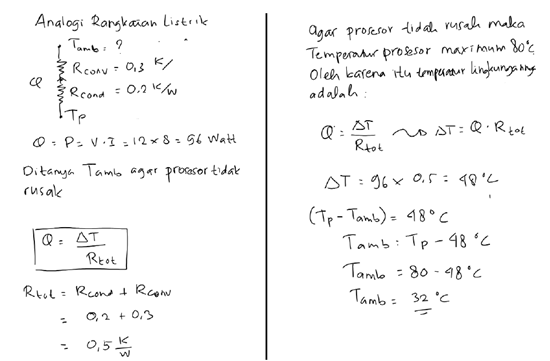 Analogi Rangkaian Listrik
Tamb : ?
Rconv = 0,3 K/
Q
Rcond = 0.2 K/W
Tp
Q = P = V . I = 12 x 8 = 96 Watt
Ditanya Tamb agar prosesor tidak
rusak
Q = ΔT / Rtot
Rtot = Rcond + Rconv
= 0,2 + 0,3
= 0,5 K/W
agar prosesor tidak rusak maka
Temperatur prosesor maximum 80°C
Oleh karena itu temperatur lingkungannya
adalah :
Q = ΔT / Rtot ⇝ ΔT = Q . Rtot
ΔT = 96 x 0,5 = 48°C
(Tp - Tamb) = 48°C
Tamb : Tp - 48°C
Tamb = 80 - 48°C
Tamb = 32°C